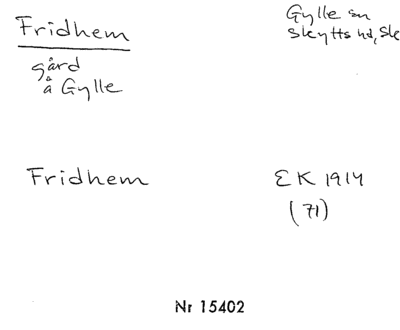 Fridhem
gård
å Gylle
Gylle sn
Skytts hd, Sk
Fridhem
EK 1914
(71)
Nr 15402